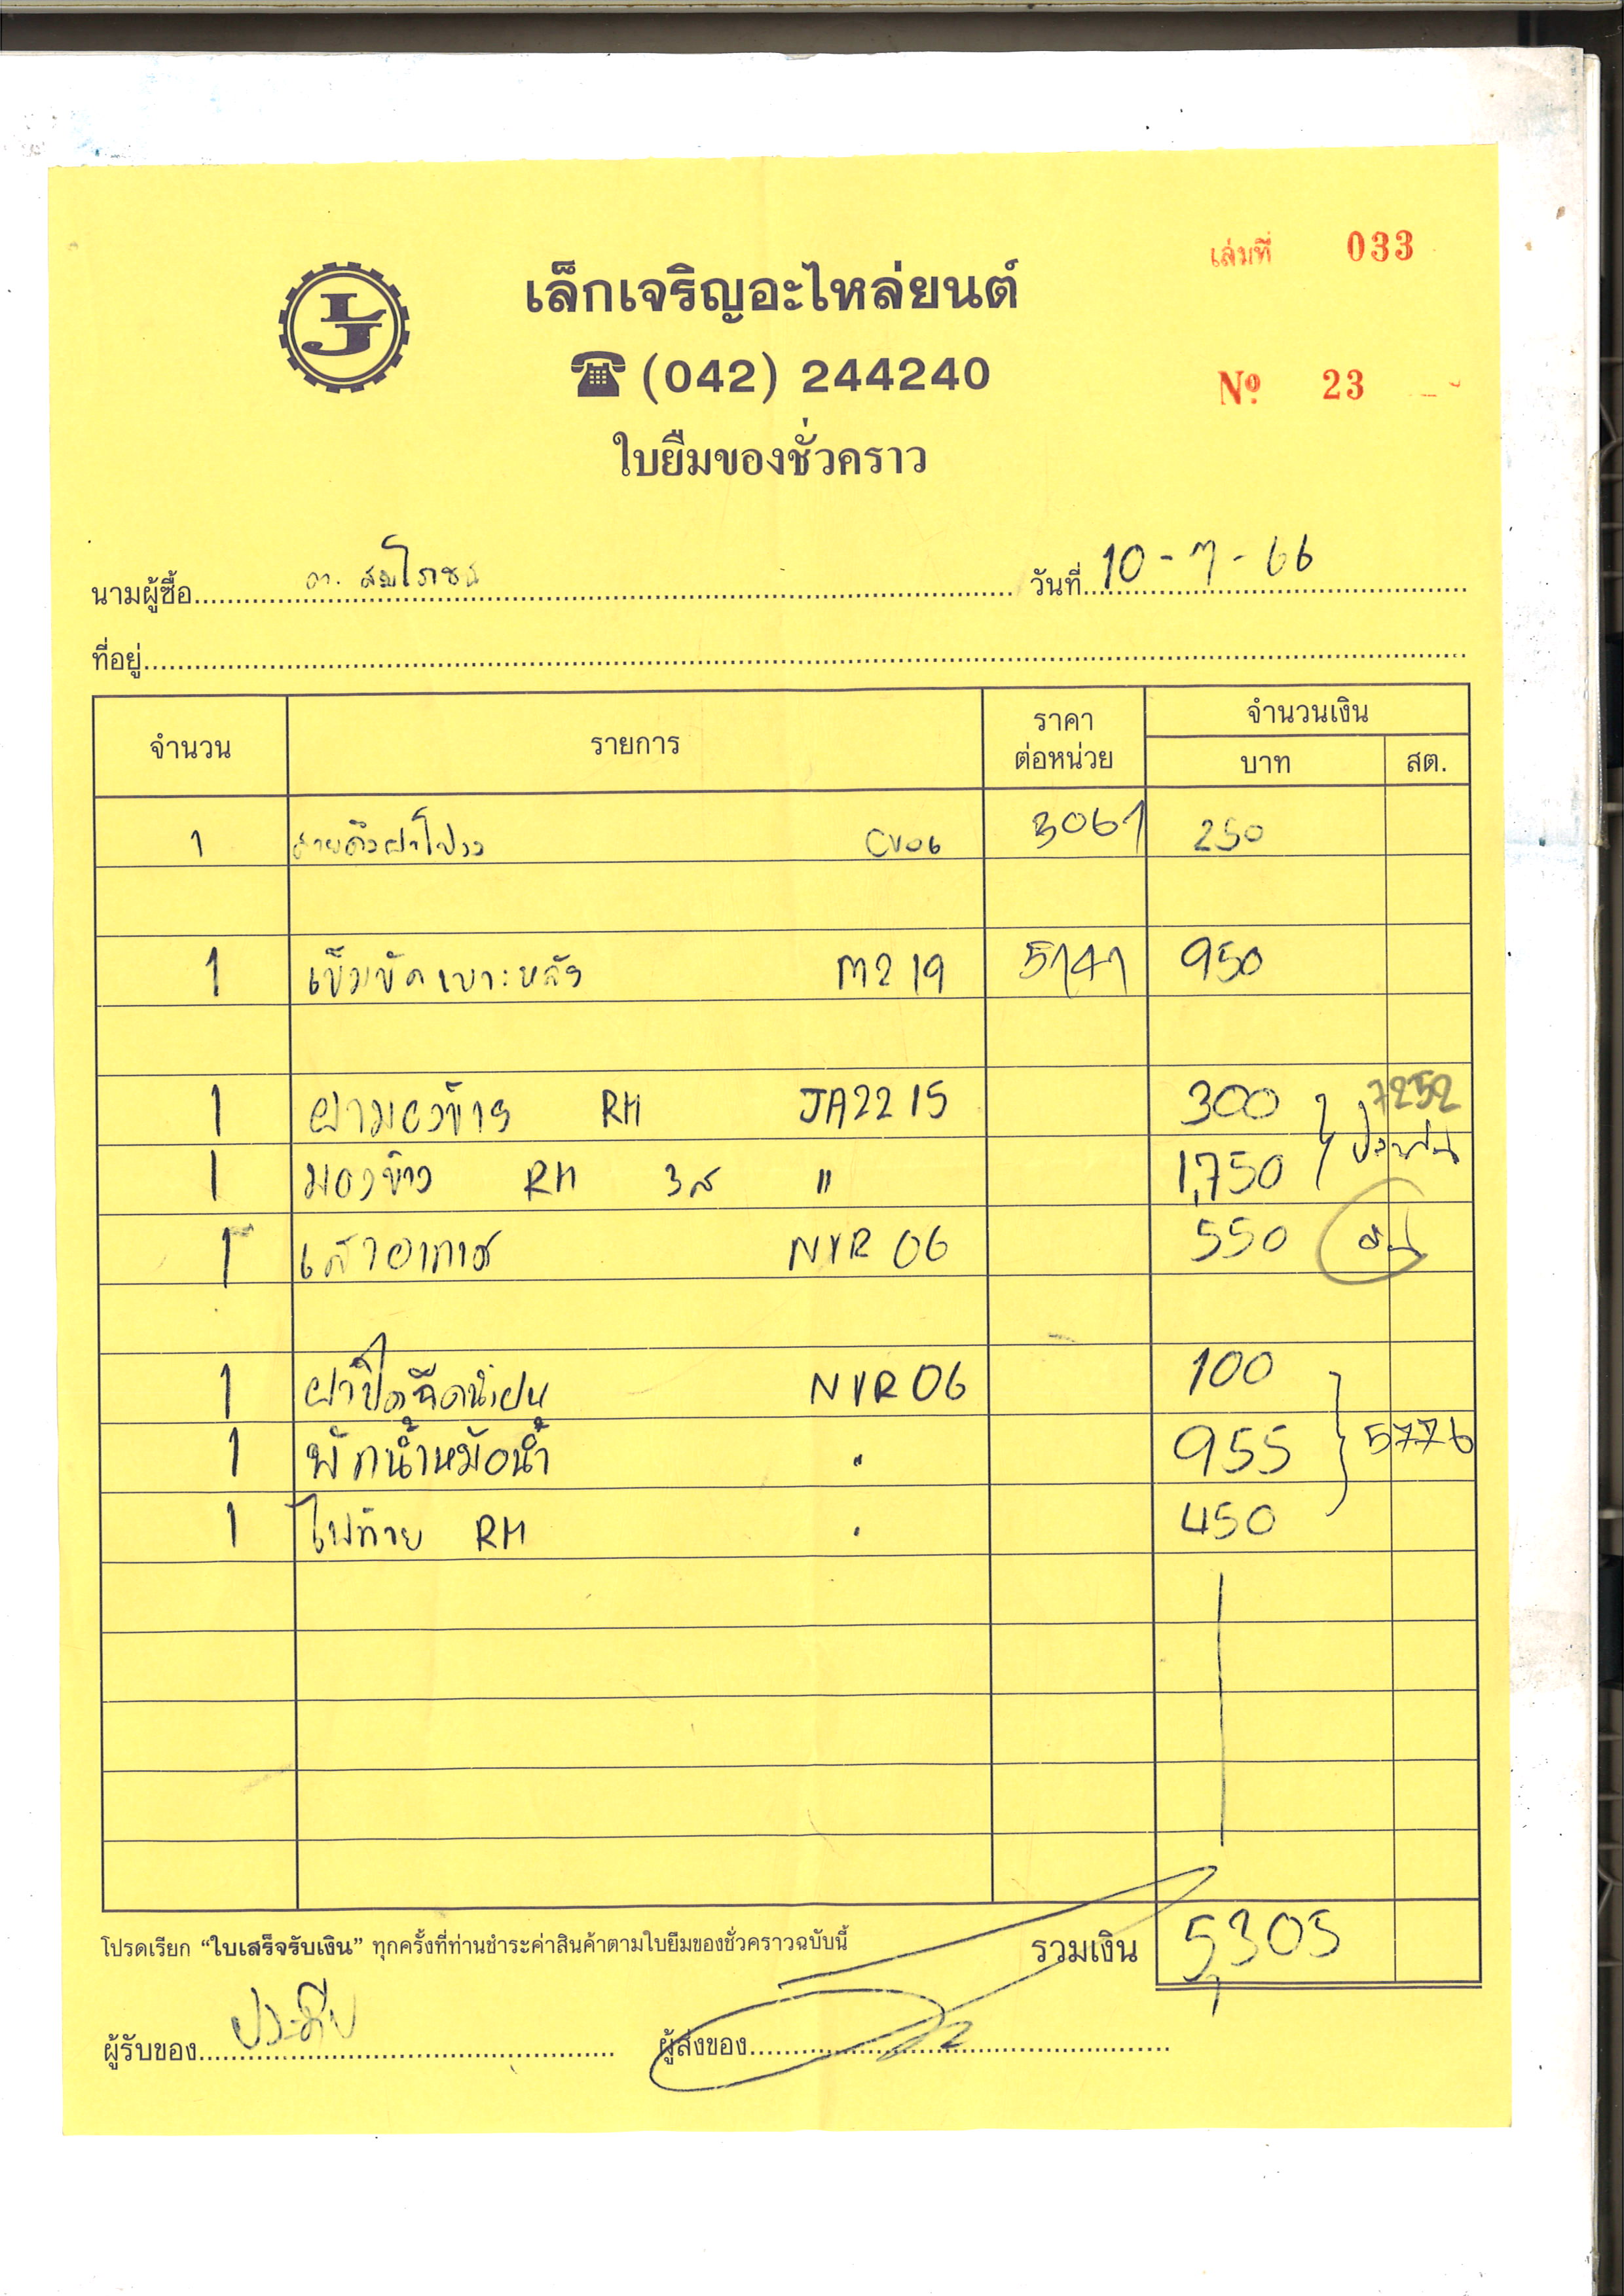 เล่มที่ 033
LJ
เล็กเจริญอะไหล่ยนต์
(042) 244240
Nº 23
ใบยืมของชั่วคราว
นามผู้ซื้อ วันที่ 10-7-66
ที่อยู่
จำนวน รายการ ราคาต่อหน่วย จำนวนเงิน
บาท สต.
1 CV06 3061 250
1 เข็มขัดเบาะหลัง M219 5141 950
1 ฝามองข้าง RH JA2215 300 7252
1 มองข้าง RH 3ส " 1,750
1 เสาอากาศ NVR06 550
1 ฝาปิดฉีดน้ำฝน NVR06 100
1 พักน้ำหม้อน้ำ " 955 5776
1 ไฟท้าย RH " 450
โปรดเรียก “ใบเสร็จรับเงิน” ทุกครั้งที่ท่านชำระค่าสินค้าตามใบยืมของชั่วคราวฉบับนี้ รวมเงิน 5,305
ผู้รับของ ประทีป ผู้ส่งของ